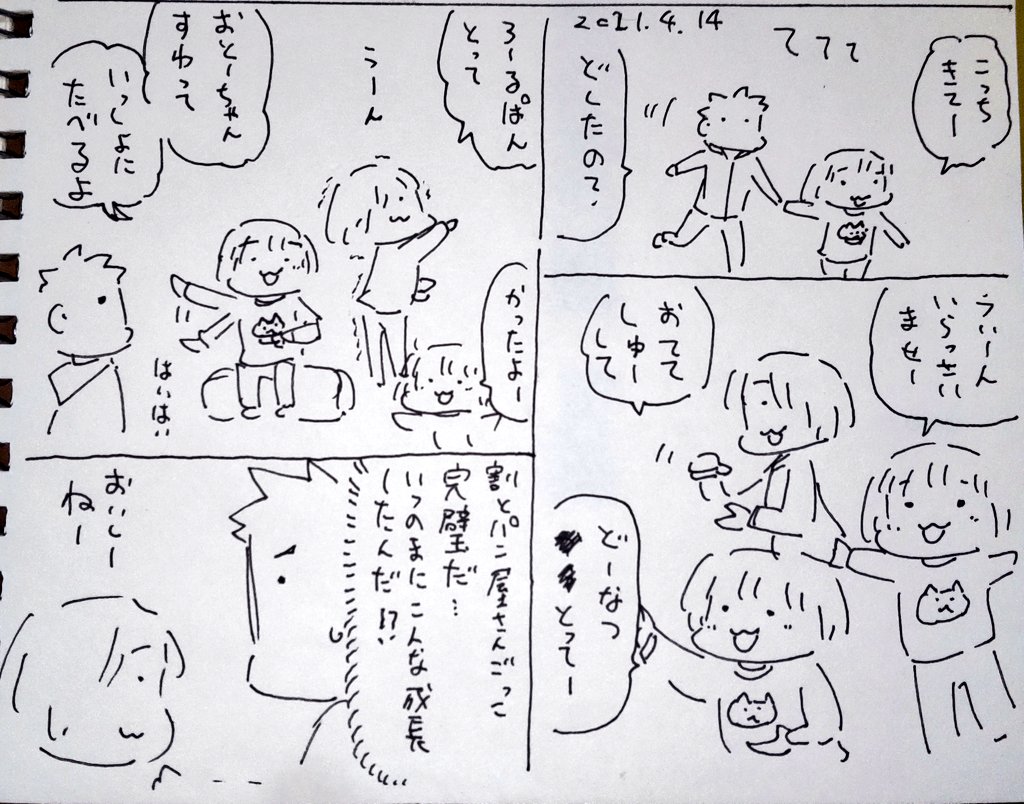 2021.4.14
こっち
きてー
ててて
どしたのて・
うぃーん
いらっさい
ませー
おてて
しゅー
して
どーなつ
とってー
ろーるぱん
とって
うーん
かったよー
おとーちゃん
すわって
いっしょに
たべるよ
はいはい
割とパン屋さんごっこ
完璧だ…
いつのまにこんな成長
したんだ!?
おいしー
ねー